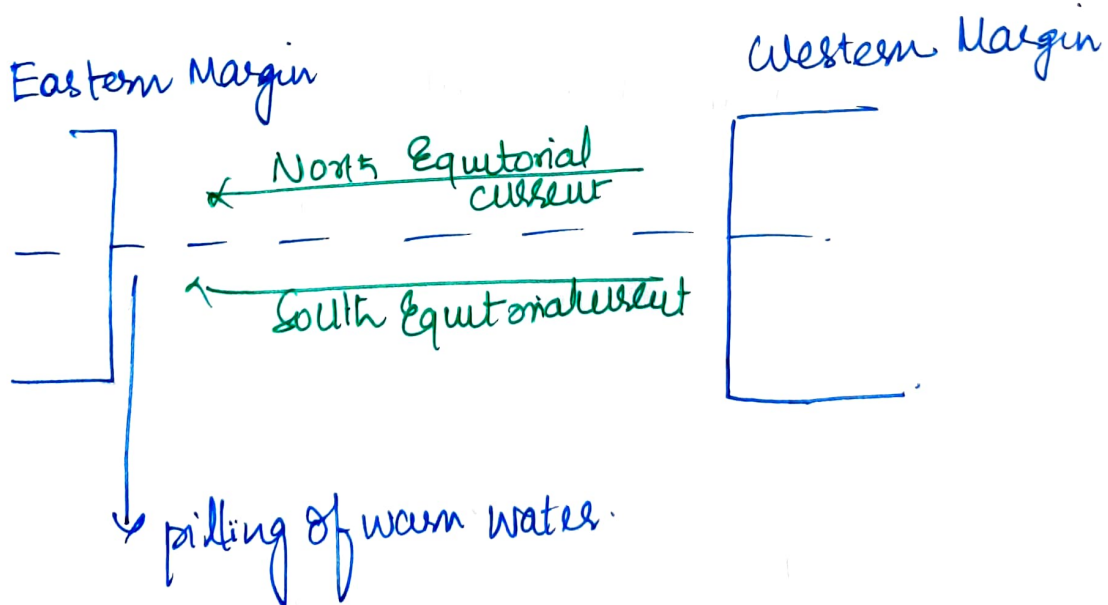 Eastern Margin
Western Margin
North Equitorial
current
South Equitorial current
pilling of warm water.